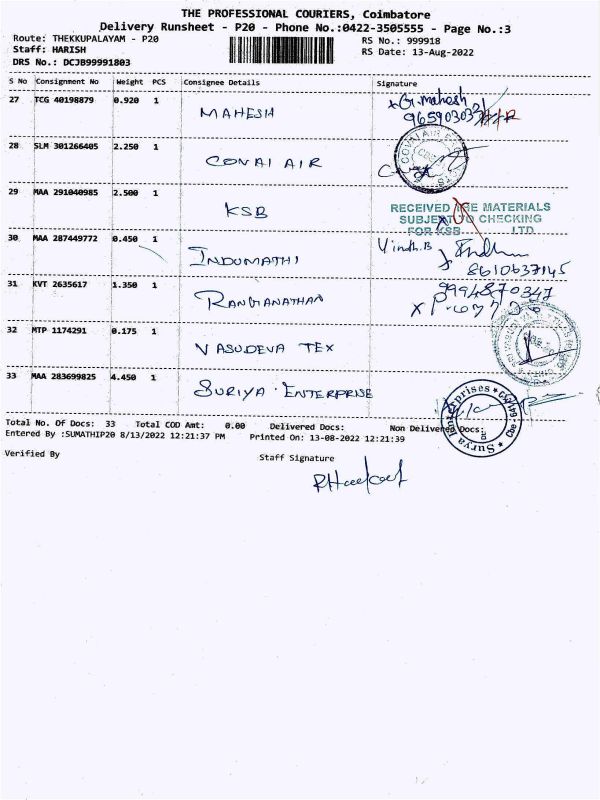 THE PROFESSIONAL COURIERS, Coimbatore
Delivery Runsheet - P20 - Phone No.:0422-3505555 - Page No.:3
Route: THEKKUPALAYAM - P20 RS No.: 999918
Staff: HARISH RS Date: 13-Aug-2022
DRS No.: DCJB99991803
S No Consignment No Weight PCS Consignee Details Signature
27 TCG 40198879 0.920 1 MAHESH G. mahesh
28 SLM 301266405 2.250 1 COVAI AIR
29 MAA 291040985 2.500 1 KSB
RECEIVED THE MATERIALS
SUBJECT TO CHECKING
FOR KSB LTD
30 MAA 287449772 0.450 1 INDUMATHI
8610637145
31 KVT 2635617 1.350 1 RANGANATHAN 9994870347
32 MTP 1174291 0.175 1 VASUDEVA TEX
33 MAA 283699825 4.450 1 SURIYA ENTERPRISE
Surya Enterprises
Total No. Of Docs: 33 Total COD Amt: 0.00 Delivered Docs: Non Delivered Docs:
Entered By :SUMATHIP20 8/13/2022 12:21:37 PM Printed On: 13-08-2022 12:21:39
Verified By Staff Signature